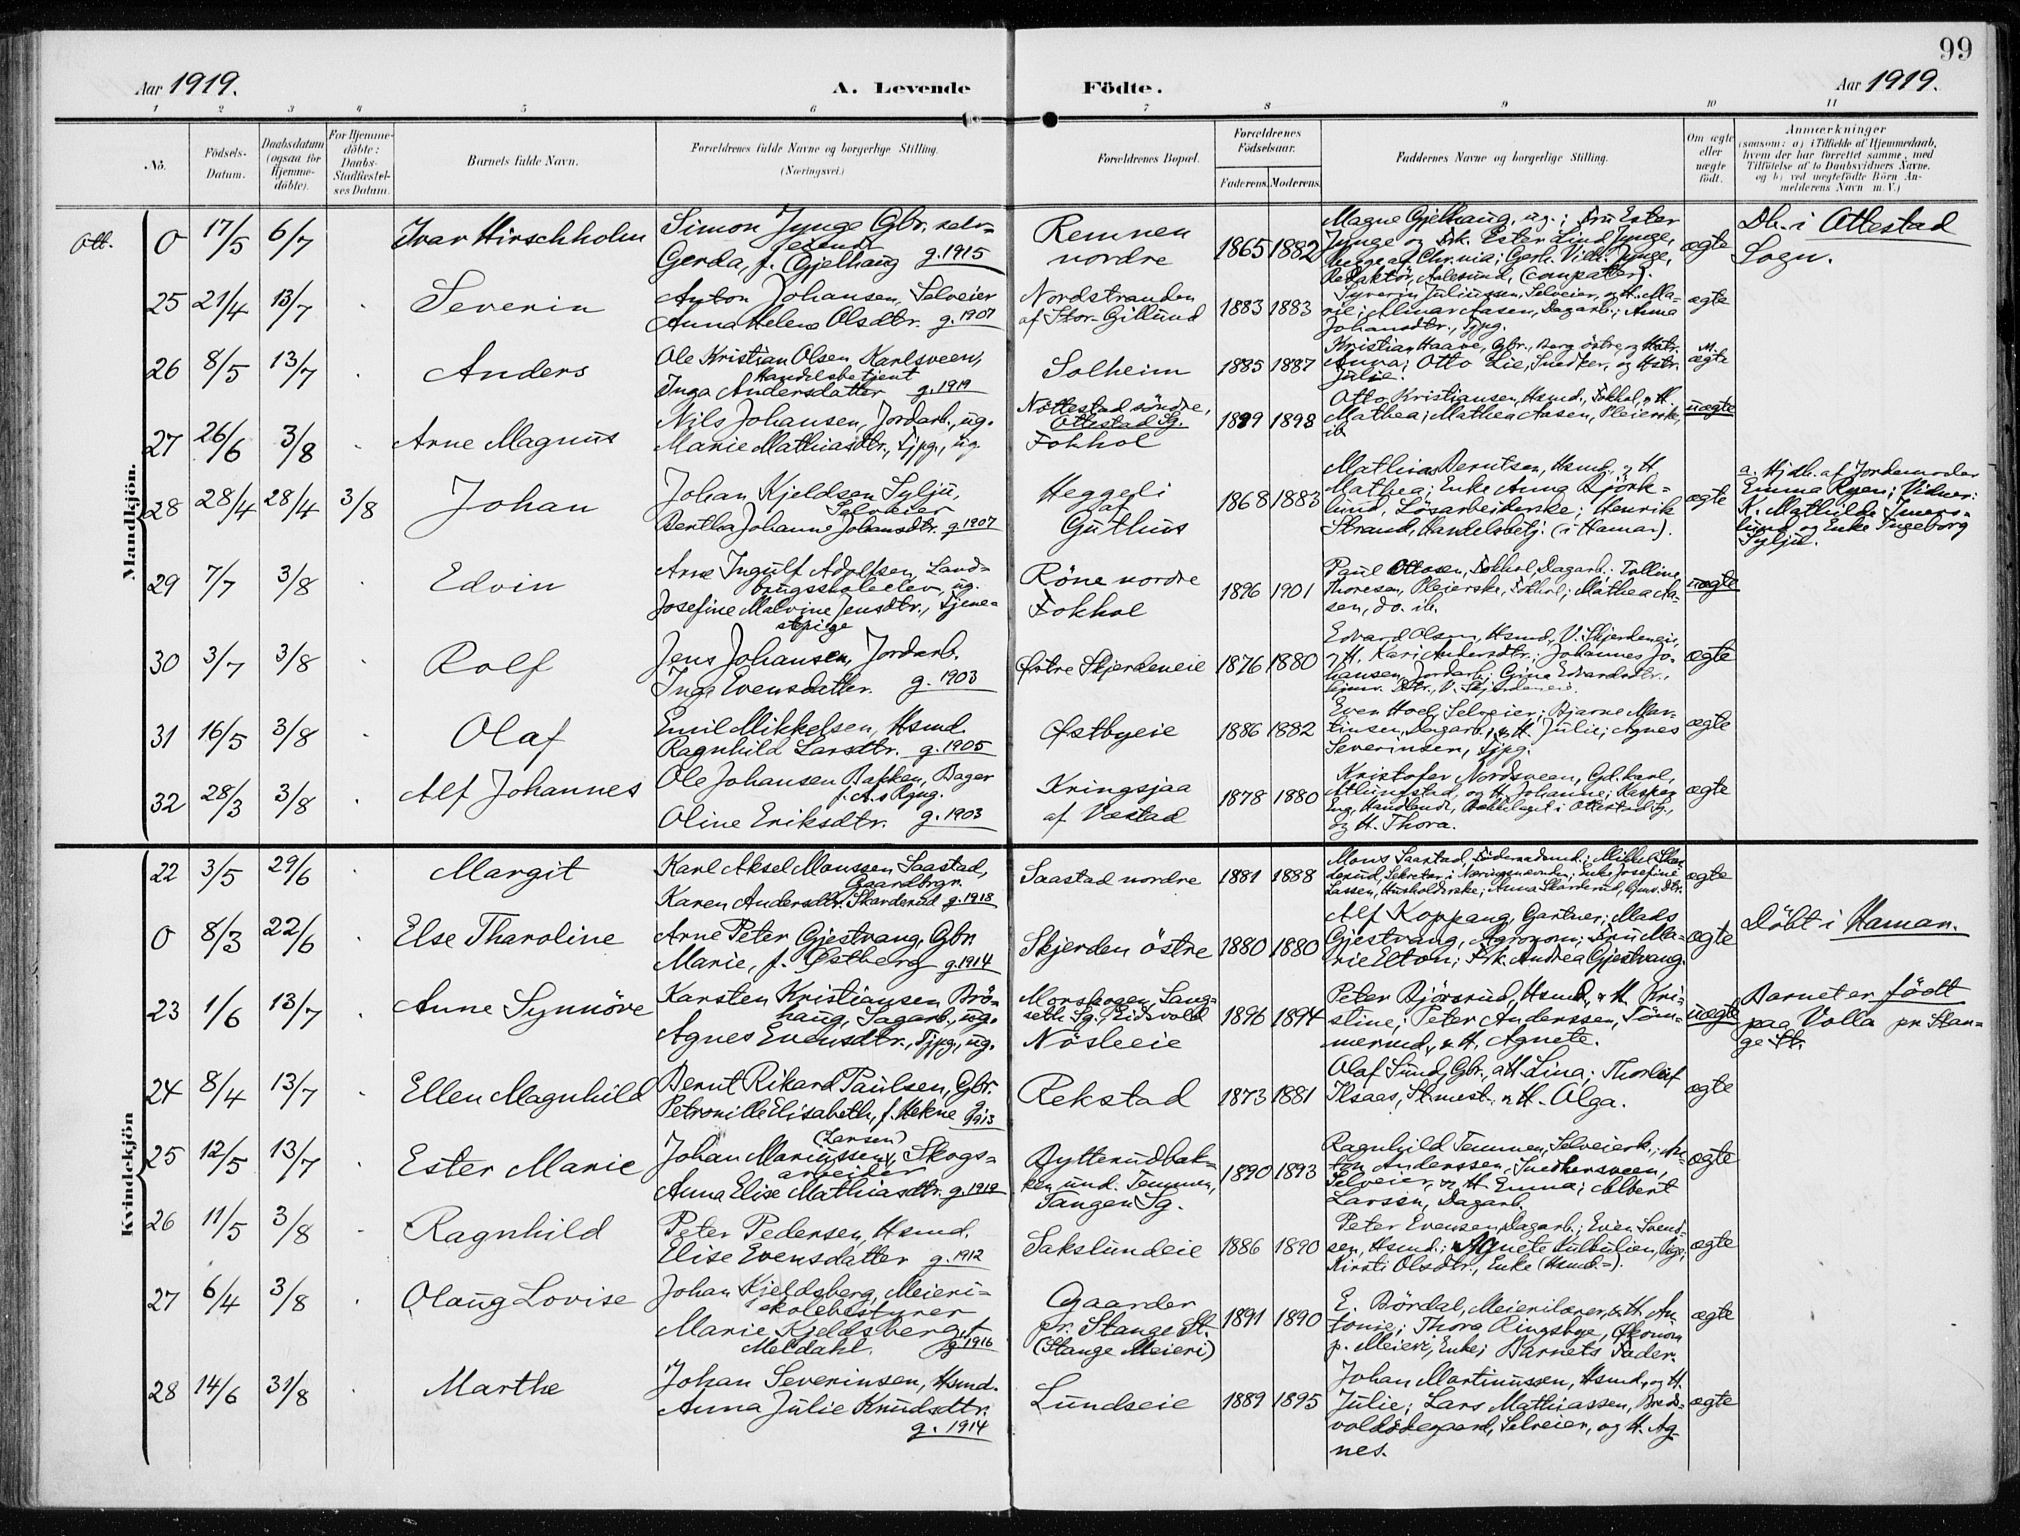 99
Aar 1919.
A. Levende
Födte.
Aar 1919.
1 2 3 4 5 6 7 8 9 10 11
No.
Födsels-
Datum.
Daabsdatum
(ogsaa for
Hjemme-
döbte).
For Hjemme-
döbte:
Daabs-
Stadfæstel-
ses Datum.
Barnets fulde Navn.
Forældrenes fulde Navne og borgerlige Stilling.
(Næringsvei.)
Forældrenes Bopæl.
Forældrenes
Födselsaar.
Faderens. Moderens.
Faddernes Navne og borgerlige Stilling.
Om ægte
eller
uægte
födt.
Anmærkninger
(saasom: a) i Tilfælde af Hjemmedaab,
hvem der har forrettet samme, med
Tilföielse af to Daabsvidners Navne,
og b) ved uægtefödte Börn An-
melderens Navn m. V.)
Mandkjön.
Ott. 0 17/5 6/7 Ivar Hirschholm
Simon Jynge Gbr. selv-
eiende
Gerda, f. Gjelhaug g. 1915
Remmen
nordre
1865 1882
Magne Gjelhaug, ug.; Fru Ester
Jynge og Frk. Ester Lind Jynge,
begge af Chr.nia; Gerh. Vilh. Jynge,
Redaktör, Aalesund, (compater).
ægte
Db. i Ottestad
Sogn.
25 21/4 13/7 Severin
Anton Johansen, Selveier
Anna Helene Olsdtr. g. 1907
Nordstranden
af Stor-Gillund
1883 1883
Syverin Juliussen, Selveier, og H. Ma-
rie; Almar Aasen, Dagarb.; Anna
Johansdtr., Tjpg.
ægte
26 8/5 13/7 Anders
Ole Kristian Olsen Karlsveen,
Handelsbetjent
Inga Andersdatter g. 1919
Solheim
1885 1887
Kristian Haave, Gbr., Berg östre, og Hstr.
Anna; Otto Lie, Snedker, og Hstr.
Julie.
ægte
27 26/6 3/8 Arne Magnus
Nils Johansen, Jordarb., ug.
Marie Mathiasdtr., Tjpg., ug.
Nöttestad söndre,
Ottestad Sg.
Fokhol
1899 1898
Otto Kristiansen, Hsmd., Fokhol, og H.
Mathea; Mathea Aasen, Pleierske,
ib
uægte
28 28/4 28/4 3/8 Johan
Johan Kjeldsen Sylju,
Selveier
Bertha Johanne Johansdtr. g. 1907
Heggerli
af
Guthus
1868 1883
Mathias Berntsen, Hsmd., og H.
Mathea; Enke Anna Björk-
lund, Lösarbeiderske; Henrik
Strand, Handelsbetj. (i Hamar).
ægte
a. Hjdb. af Jordemoder
Emma Ryen; Vidner:
K. Mathilde Imers-
lund og Enke Ingeborg
Sylju.
29 7/7 3/8 Edvin
Arne Ingulf Adolfsen, Land-
brugsskoleelev, ug.
Josefine Malvine Jensdtr., Tjene-
stpige
Röne nordre
Fokhol
1896 1901
Paul Ottosen, Fokhol, Dagarb.; Tolline
Thoresen, Pleierske, Fokhol; Mathea Aa-
sen, do. ib.
uægte
30 3/7 3/8 Rolf
Jens Johansen, Jordarb.
Inga Evensdatter. g. 1903
Östre Skjerdeneie
1876 1880
Edvard Olsen, Hsmd., V. Skjerdeneie,
og H. Kari Andersdtr.; Johannes Jo-
hansen, Jordarb.; Gina Edvardsdtr.,
hjmv. Dtr., V. Skjerdeneie.
ægte
31 16/5 3/8 Olaf
Emil Mikkelsen, Hsmd.
Ragnhild Larsdtr. g. 1905
Östbyeie
1886 1882
Even Hoel, Selveier; Bjarne Mar-
tinsen, Dagarb., og H. Julie; Agnes
Severinsen, Tjpg.
ægte
32 28/3 3/8 Alf Johannes
Ole Johansen Bakken, Bager
Oline Eriksdtr. g. 1903
Kringsjaa
af Vestad
1878 1880
Kristofer Nordsveen, Gd.karl,
Atlungstad, og H. Johanne; Kasper
Eng, Handlende, Bekkelaget i Ottestad Sg.,
og H. Thora.
ægte
Kvindekjön
22 3/5 29/6 Margit
Karl Aksel Monssen Saastad,
Gaardbrgr.
Karen Andersdtr. Skarderud g. 1918
Saastad nordre
1881 1888
Mons Saastad, Födernadsmd.; Mikkel Skar-
derud, Sekretær i Næringsnævnden; Enke Josefine
Lassen, Husholderske; Anna Skarderud, hjmv. Dtr.
ægte
0 8/3 22/6 Else Tharoline
Arne Peter Gjestvang, Gbr.
Marie, f. Östberg g. 1914
Skjerden östre
1880 1880
Alf Koppang, Gartner; Mads
Gjestvang, Agronom; Fru Ma-
rie Elton; Frk. Andrea Gjestvang.
ægte
Döbt i Hamar.
23 1/6 13/7 Anne Synnöve
Karsten Kristiansen Brö-
haug, Sagarb., ug.
Agnes Evensdtr., Tjpg., ug.
Morskogen, Lang-
seth Sg., Eidsvold
Nösleeie
1896 1894
Peter Björsrud, Hsmd., og H. Kri-
stine; Peter Anderssen, Töm-
merud, og H. Agnete.
uægte
Barnet er födt
paa Volla pr. Stan-
ge St.
24 8/4 13/7 Ellen Magnhild
Bernt Rikard Paulsen, Gbr.
Petronille Elisabeth, f. Hekne g. 1913
Rekstad
1873 1881
Olaf Sund, Gbr., og H. Lina; Thorleif
Ilsaas, St.mest. og H. Olga.
ægte
25 12/5 13/7 Ester Marie
(Larsen)
Johan Mariussen, Skogs-
arbeider
Anna Elise Mathiasdtr. g. 1919
Bytterudbak-
ken und. Temmen,
Tangen Sg.
1890 1893
Ragnhild Temmen, Selveierk.; An-
ton Anderssen, Snedkersveen,
Selveier, og H. Emma; Albert
Larsen, Dagarb.
ægte
26 11/5 3/8 Ragnhild
Peter Pedersen, Hsmd.
Elise Evensdatter g. 1912
Sakslundeie
1886 1890
Peter Evensen, Dagarb.; Even Svend-
sen, Hsmd.; Agnete Kulbulien, Pige;
Kirsti Olsdtr., Enke (Hsmd.-).
ægte
27 6/4 3/8 Olaug Lovise
Johan Kjeldsberg, Meieri-
skolebestyrer
Marie Kjeldsberg, f.
Meldahl. g. 1916
Gaarder
pr. Stange St.
(Stange Meieri)
1891 1890
E. Bördal, Meierilærer, og H. An-
tonie; Thora Ringsbye, Ökonom
p. Meieri, Enke; Barnets Fader.
ægte
28 14/6 31/8 Marthe
Johan Severinsen, Hsmd.
Anna Julie Knudsdtr.
g. 1914
Lundseie
1889 1895
Johan Martinussen, Hsmd., og H.
Julie; Lars Mathiassen, Bred-
voldödegaard, Selveier, og H. Ag-
nes.
ægte